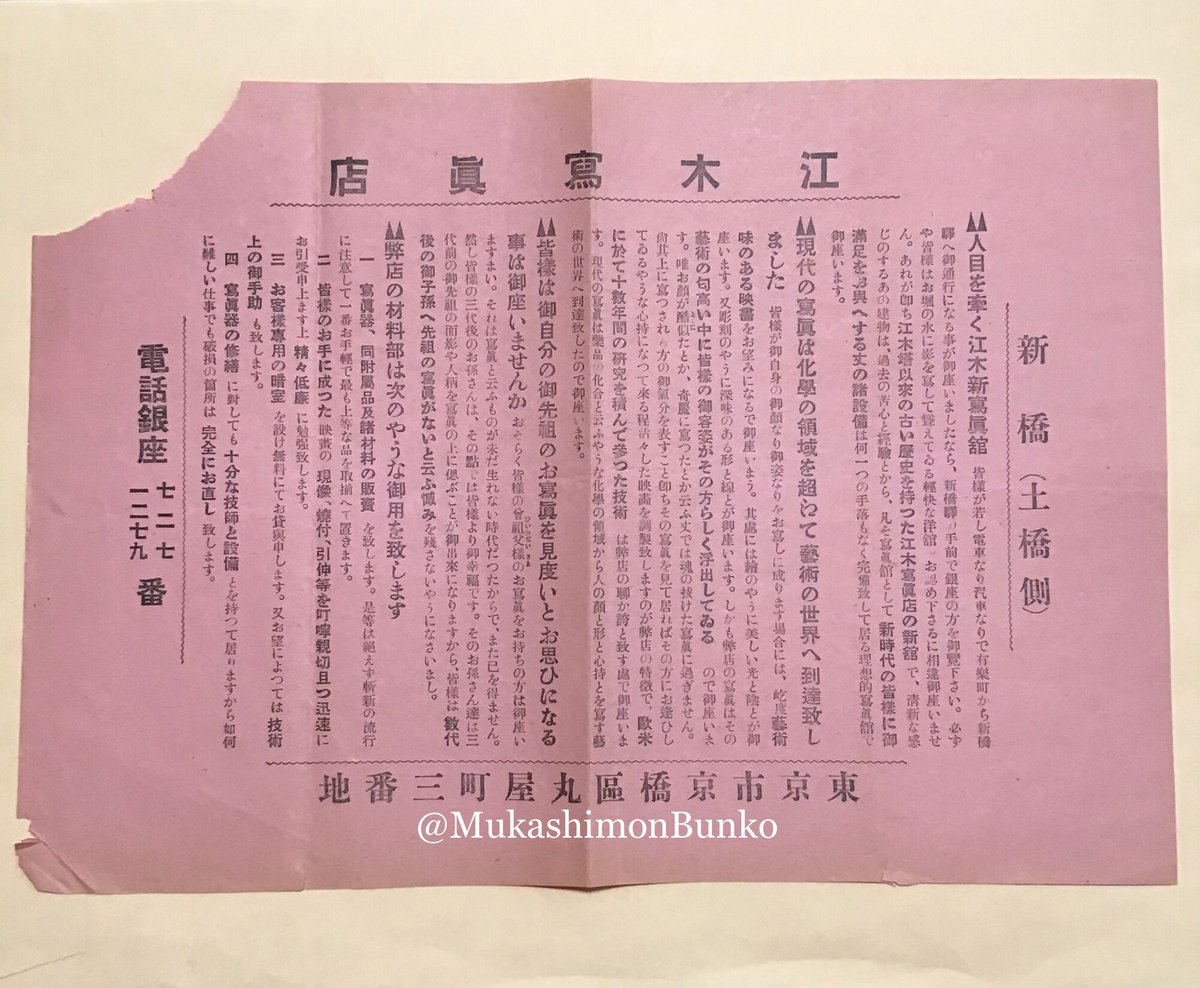 江木寫眞店
新橋（土橋側）
人目を牽く江木新寫眞舘 皆樣が若し電車なり汽車なりで有樂町から新橋
驛へ御通行になる事が御座いましたなら、新橋驛の手前で銀座の方を御覽下さい。必ず
や皆樣はお堀の水に影を寫して聳えてゐる輕快な洋舘をお認め下さるに相違御座いませ
ん。あれが卽ち江木塔以來の古い歷史を持つた江木寫眞店の新舘で、淸新な感
じのするあの建物は、過去の苦心と經驗とから、凡そ寫眞舘として新時代の皆樣に御
滿足をお與へする丈の諸設備は何一つの手落もなく完備致して居る理想的寫眞舘で
御座います。
現代の寫眞は化學の領域を超わて藝術の世界へ到達致し
ました 皆樣が御自身の御顏なり御姿なりをお寫しに成ります場合には、屹度藝術
味のある映畵をお望みになるで御座いませう。其處には繪のやうに美しい光と陰とが御
座います。又彫刻のやうに深味のある形と線とが御座います。しかも弊店の寫眞はその
藝術の匂高い中に皆樣の御容姿がその方らしく浮出してゐるので御座いま
す。唯お顏が酷似たとか、奇麗に寫つたとか云ふ丈では魂の拔けた寫眞に過ぎません。
尙其上に寫つされる方の御氣分を表すこと卽ちその寫眞を見て居ればその方にお逢ひし
てゐるやうな心持になつて來る程活々した映畵を調製致しますのが弊店の特徵で、歐米
に於て十數年間の硏究を積んで參つた技術は弊店の聊か誇と致す處で御座いま
す。現代の寫眞は藥品の化合と云ふやうな化學の領域から人の顏と形と心持とを寫す藝
術の世界へ到達致したので御座います。
皆樣は御自分の御先祖のお寫眞を見度いとお思ひになる
事は御座いませんか おそらく皆樣の曾祖父樣のお寫眞をお持ちの方は御座い
ますまい。それは寫眞と云ふものが未だ生れない時代だつたからで、また已を得ません。
然し皆樣の三代後のお孫さんは、その點では皆樣より御幸福です。そのお孫さん達は三
代前の御先祖の面影や人柄を寫眞の上に偲ぶことが御出來になりますから、皆樣は數代
後の御子孫へ先祖の寫眞がないと云ふ憾みを殘さないやうになさいまし。
弊店の材料部は次のやうな御用を致します
一 寫眞器、同附屬品及諸材料の販賣を致します。是等は絕えず斬新の流行
に注意して一番お手輕で最も上等な品を取揃へて置きます。
二 皆樣のお手に成つた映畵の現像、燒付、引伸等を叮嚀親切且つ迅速に
お引受申上ます上精々低廉に勉强致します。
三 お客樣專用の暗室を設け無料にてお貸與申します。又お望によつては技術
上の御手助も致します。
四 寫眞器の修繕に對しても十分な技師と設備とを持つて居りますから如何
に難しい仕事でも破損の箇所は完全にお直し致します。
電話銀座 七二七 一二七九 番
東京市京橋區丸屋町三番地
@MukashimonBunko